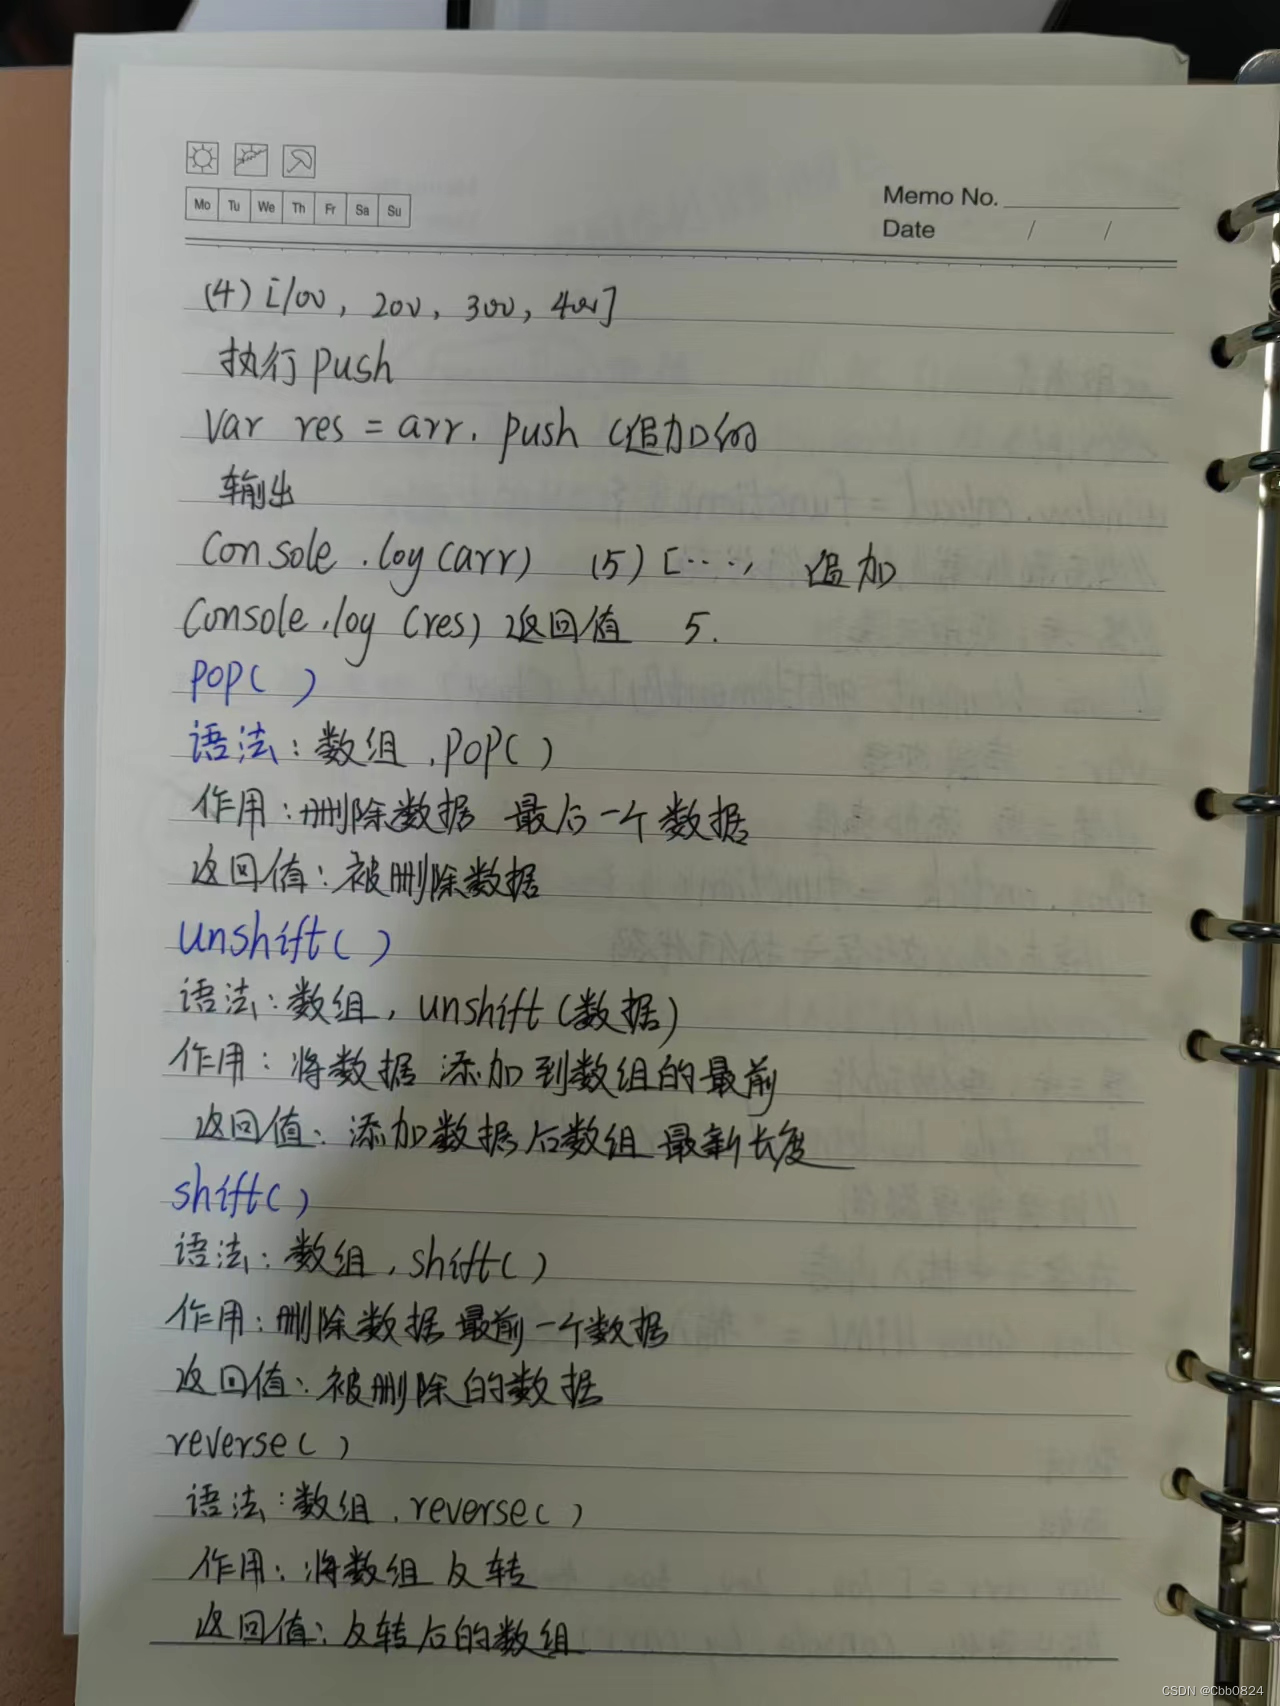 Mo Tu We Th Fr Sa Su
Memo No.
Date / /
(4) [100, 200, 300, 400]
执行 push
Var res = arr. push (追加的
输出
Console .log (arr) (5) [..., 追加
Console.log (res) 返回值 5.
pop( )
语法: 数组 .pop( )
作用: 删除数据 最后一个数据
返回值: 被删除数据
unshift( )
语法: 数组. unshift (数据)
作用: 将数据 添加到数组的最前
返回值: 添加数据后数组 最新长度
shift( )
语法: 数组 .shift( )
作用: 删除数据 最前一个数据
返回值: 被删除的数据
reverse( )
语法: 数组 .reverse( )
作用: 将数组反转
返回值: 反转后的数组
CSDN @Cbb0824